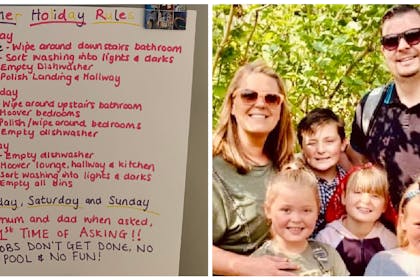 mer Holiday Rules
ay
e - Wipe around downstairs bathroom
- Sort washing into lights & darks
Empty Dishwasher
Polish Landing & Hallway
day
Wipe around upstairs bathroom
Hoover bedrooms
Polish/wipe around bedrooms
Empty dishwasher
ay
- Empty dishwasher
Hoover lounge, hallway & kitchen
Sort washing into lights & darks
Empty all bins
day, Saturday and Sunday
mum and dad when asked,
1st TIME OF ASKING!!
OBS DON'T GET DONE, NO
POOL & NO FUN!